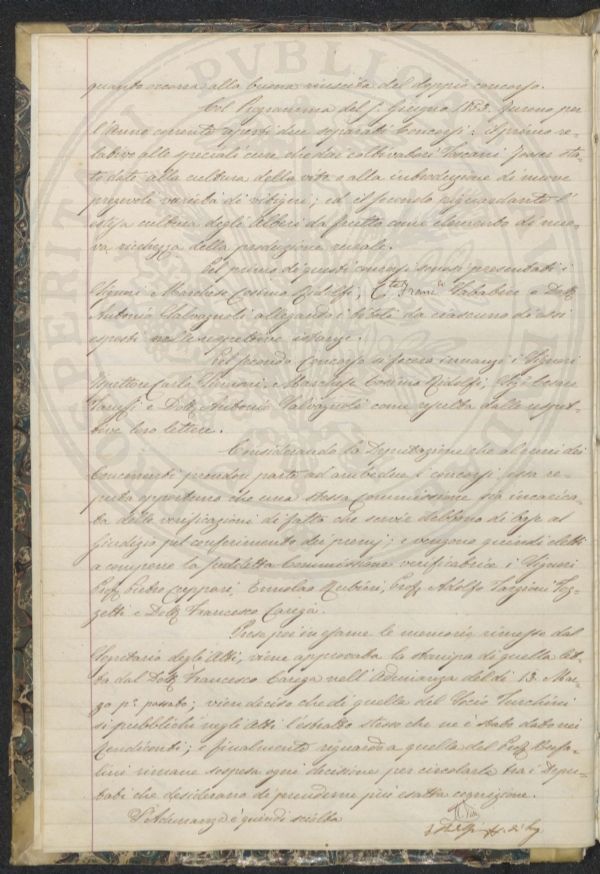 quanto occorra alla buona riuscita del doppio concorso.
Col Programma del Giugno 1853. furono per
l'anno corrente aperti due separati Concorsi: il primo re-
lativo alle speciali cure che dai coltivatori Toscani fosse sta-
te date alla cultura della vite e alla introduzione di nuove
pregevoli varietà di vitigni; ed il secondo risguardante l'
estesa cultura degli Alberi da frutto come elemento di nuo-
va ricchezza della produzione rurale.
Pel primo di questi concorsi sonosi presentati i
Signori Marchese Cosimo Ridolfi, e Dott.
Antonio Salvagnoli allegando i titoli da ciascuno di essi
esposti nelle respettive istanze.
Pel secondo Concorso si fecero innanzi i Signori
Ispettore Carlo Siemoni, Marchese Cosimo Ridolfi, Cesare
e Dott. Antonio Salvagnoli come resulta dalle respet-
tive loro lettere.
Considerando la Deputazione che alcuni dei
Concorrenti prendon parte ad ambedue i concorsi, essa re-
puta opportuno che una stessa Commissione sia incarica-
ta delle verificazioni di fatto che servir debbono di base al
Giudizio pel conferimento dei premj; e vengono quindi eletti
a comporre la predetta Commissione verificatrice i Signori
Prof. Pietro Cuppari, Ermolao Rubieri, Prof. Adolfo Targioni Toz-
zetti e Dott. Francesco Carega.
Presa poi in esame le memorie rimesse dal
Segretario degli Atti, viene approvata la stampa di quella let-
ta dal Dott. Francesco Carega nell'Adunanza del dì 13. Mar-
zo p.º passato; vien deciso che di quella del Socio Turchini
si pubblichi negli Atti l'estratto stesso che ne è stato dato nei
Rendiconti; e finalmente riguardo a quella del Prof.
rimane sospesa ogni decisione per circolarla tra i Depu-
tati che desiderano di prenderne più esatta cognizione.
L'Adunanza è quindi sciolta